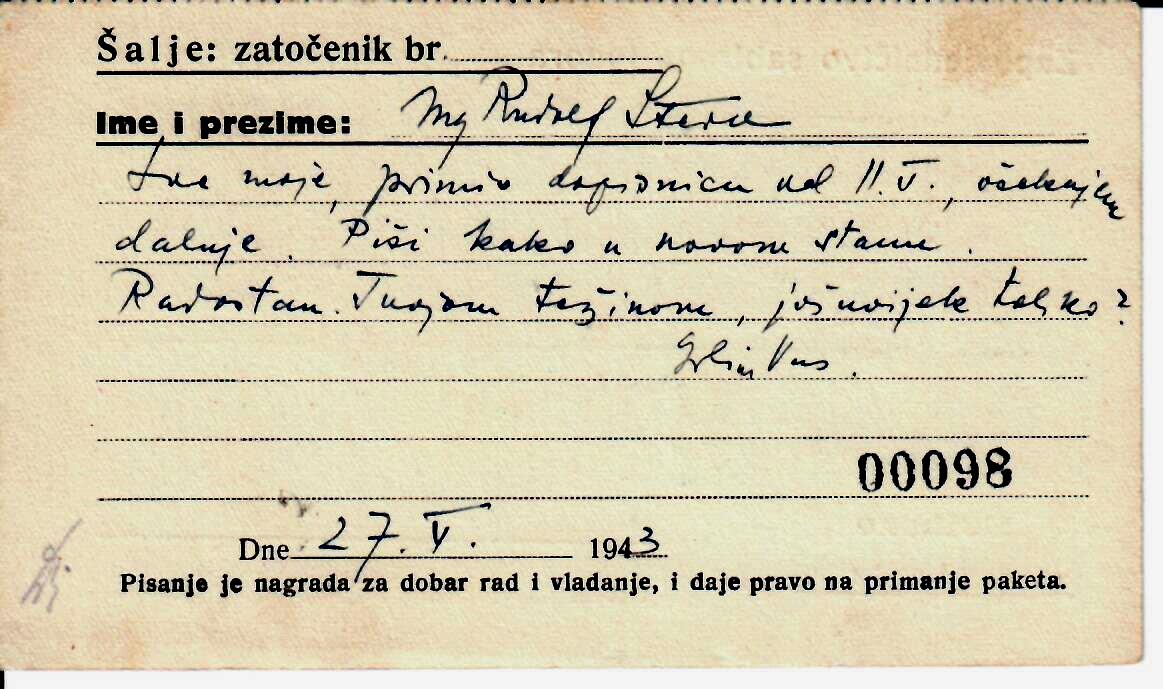 Šalje: zatočenik br.
Ime i prezime: Mg Rudolf Stern
moje, primio dopisnicu od 11. V., očekujem
dalnje. Piši kako u novom stanu.
Radostan Tvojom težinom, još uvijek toliko?
Grli Vas.
00098
Dne 27. V. 1943
Pisanje je nagrada za dobar rad i vladanje, i daje pravo na primanje paketa.